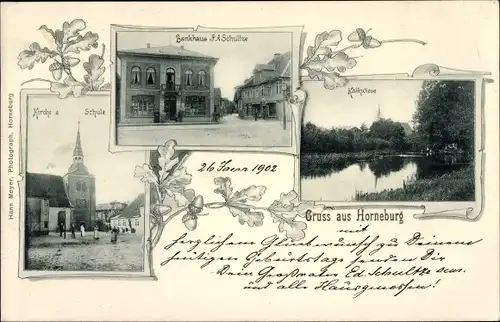 Bankhaus F. A. Schultze
Kirche u. Schule
Kalkwiese
Hans Meyer, Photograph, Horneburg
26 Januar 1902
Gruss aus Horneburg
mit
herzlichem Glückwunsch zu Deinem
heutigen Geburtstage senden Dir
Dein Großvater Ed. Schultze sen.
und alle Hausgenossen!